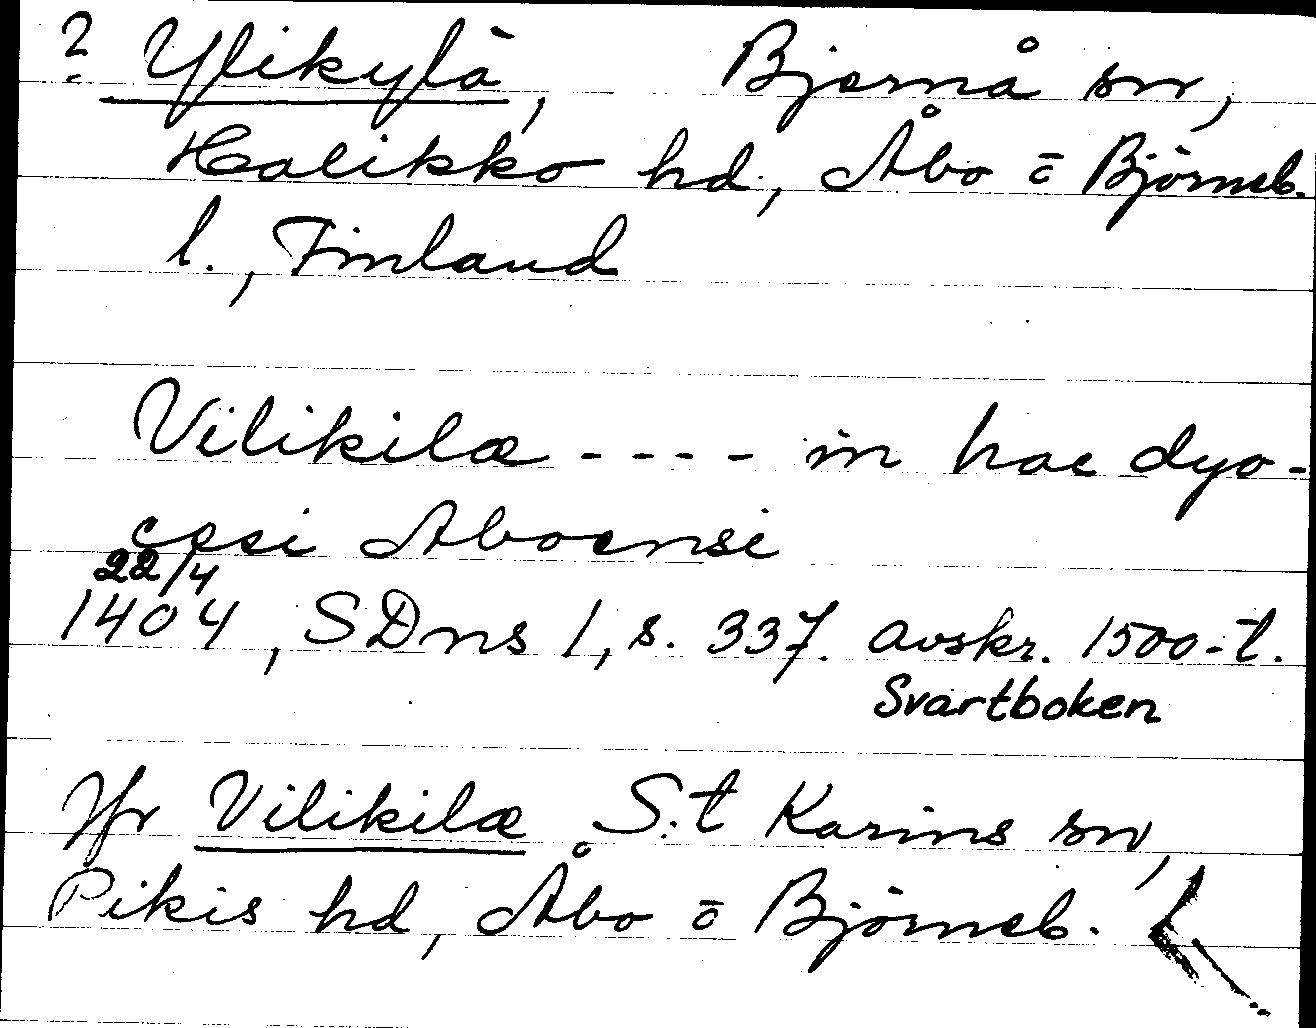 ? Ylikylä, Bjärnå sn,
Halikko hd., Åbo o Björneb.
l., Finland
Vilikilæ - - - - in hac dyo-
cesi Aboensi
22/4
1404, SDns 1, s. 337. avskr. 1500-t.
Svartboken
Jfr Vilikilæ S:t Karins sn,
Pikis hd, Åbo o Björneb. l.